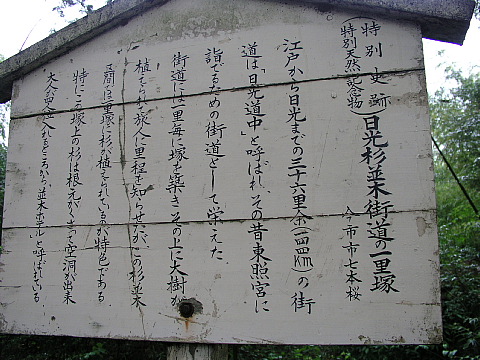 特別史跡
(特別天然記念物)
日光杉並木街道の一里塚
今市市七本桜
江戸から日光までの三十六里余(一四四Km)の街
道は「日光道中」と呼ばれ、その昔東照宮に
詣でるための街道として栄えた
街道には一里毎に塚を築き、その上に大樹が
植えられて旅人に里程を知らせたが、この杉並木
の一里塚に杉が植えられているのが特色である
特にこの塚上の杉は根元がくさって空洞が出来
大人四人位入れるところから並木ホテルと呼ばれている